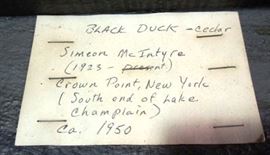 BLACK DUCK - Cedar
Simeon McIntyre
(1923 - present)
Crown Point, New York
(South end of Lake
Champlain)
Ca. 1950